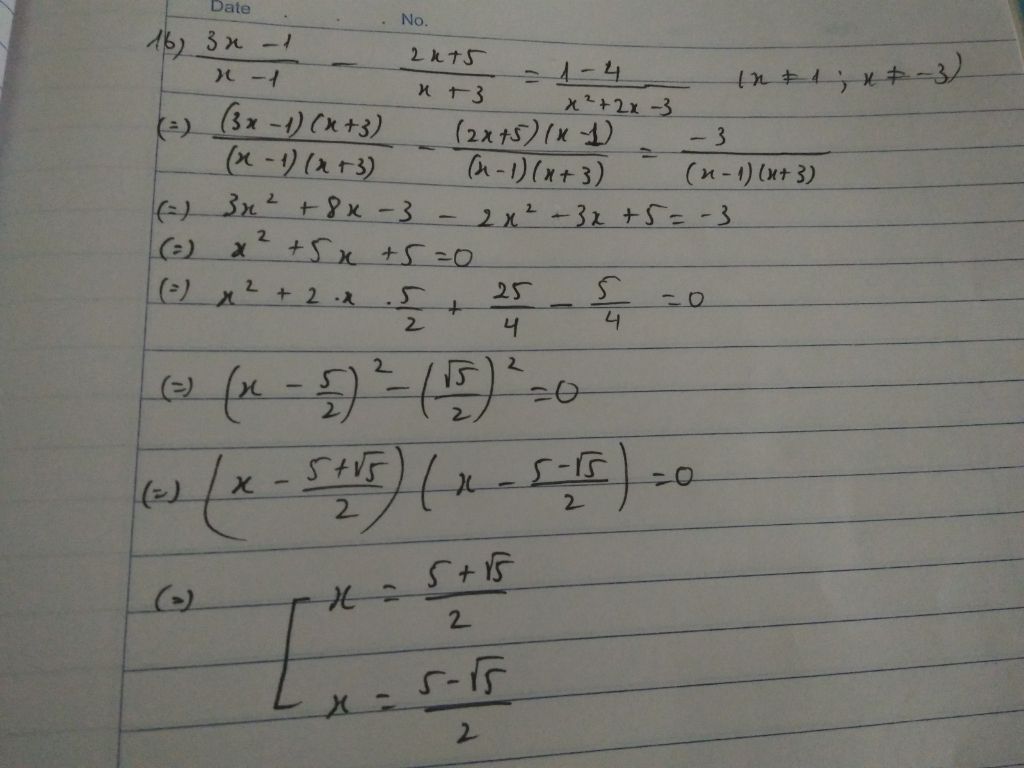 Date . . . No.
1b) \frac{3x-1}{x-1} - \frac{2x+5}{x+3} = \frac{1-4}{x^2+2x-3} (x ≠ 1 ; x ≠ -3)
(=) \frac{(3x-1)(x+3)}{(x-1)(x+3)} - \frac{(2x+5)(x-1)}{(x-1)(x+3)} = \frac{-3}{(x-1)(x+3)}
(=) 3x^2 + 8x - 3 - 2x^2 - 3x + 5 = -3
(=) x^2 + 5x + 5 = 0
(=) x^2 + 2 . x . \frac{5}{2} + \frac{25}{4} - \frac{5}{4} = 0
(=) (x - \frac{5}{2})^2 - (\frac{√5}{2})^2 = 0
(=) (x - \frac{5+√5}{2}) (x - \frac{5-√5}{2}) = 0
(=) [ x = \frac{5+√5}{2}
x = \frac{5-√5}{2}